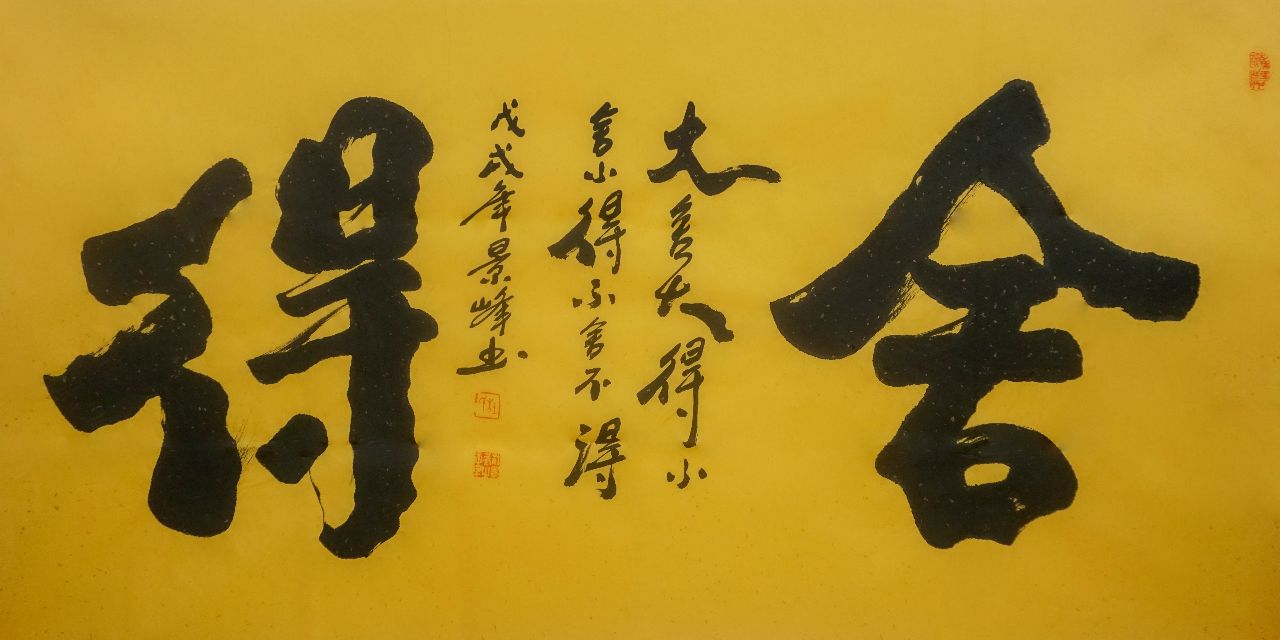 舍
大舍大得小
舍小得不舍不得
戊戌年景峰书
得